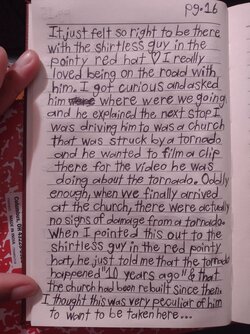 pg. 16
It just felt so right to be there
with the shirtless guy in the
pointy red hat ♡ I really
loved being on the road with
him. I got curious and asked
him where were we going
and he explained the next stop I
was driving him to was a church
that was struck by a tornado
and he wanted to film a clip
there for the video he was
doing about the tornado. Oddly
enough, when we finally arrived
at the church, there were actually
no signs of damage from a tornado.
When I pointed this out to the
shirtless guy in the red pointy
hat, he just told me that the tornado
happened "10 years ago" & that
the church had been rebuilt since then.
I thought this was very peculiar of him
to want to be taken here...